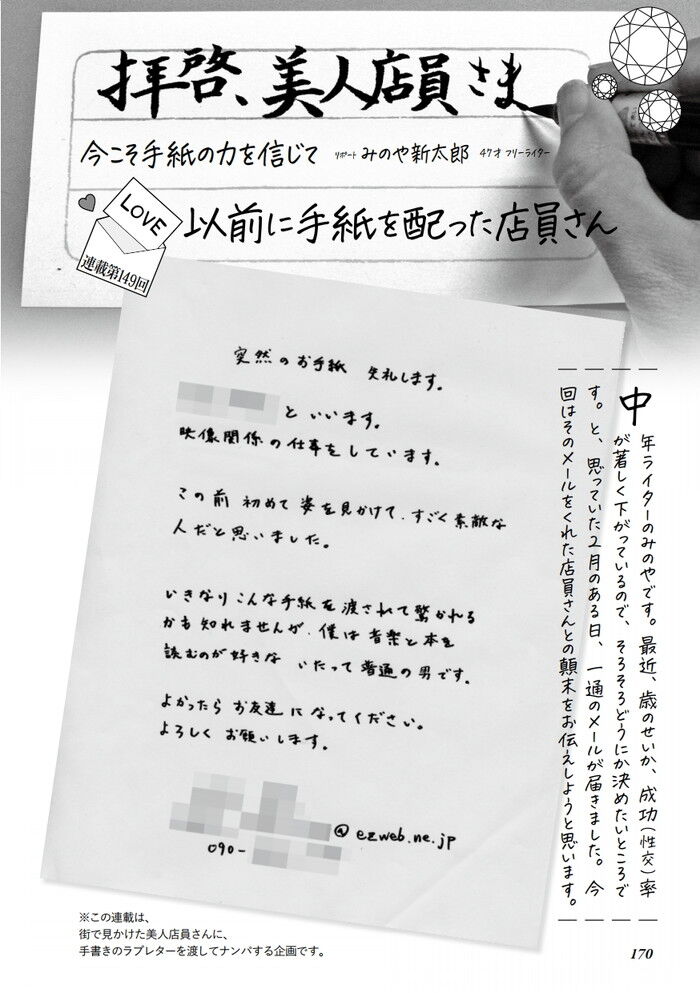 拝啓、美人店員さま
今こそ手紙の力を信じて
リポート みのや新太郎 47才 フリーライター
LOVE
連載第149回
以前に手紙を配った店員さん
突然のお手紙 失礼します。
といいます。
映像関係の仕事をしています。
この前 初めて 姿を見かけて、すごく素敵な
人だと思いました。
いきなりこんな手紙を渡されて驚かれる
かも知れませんが、僕は音楽と本を
読むのが好きな いたって普通の男です。
よかったら お友達になってください。
よろしく お願いします。
@ezweb.ne.jp
090-
中年ライターのみのやです。最近、歳のせいか、成功(性交)率
が著しく下がっているので、そろそろどうにか決めたいところで
す。と、思っていた2月のある日、一通のメールが届きました。今
回はそのメールをくれた店員さんとの顛末をお伝えしようと思います。
※この連載は、
街で見かけた美人店員さんに、
手書きのラブレターを渡してナンパする企画です。
170